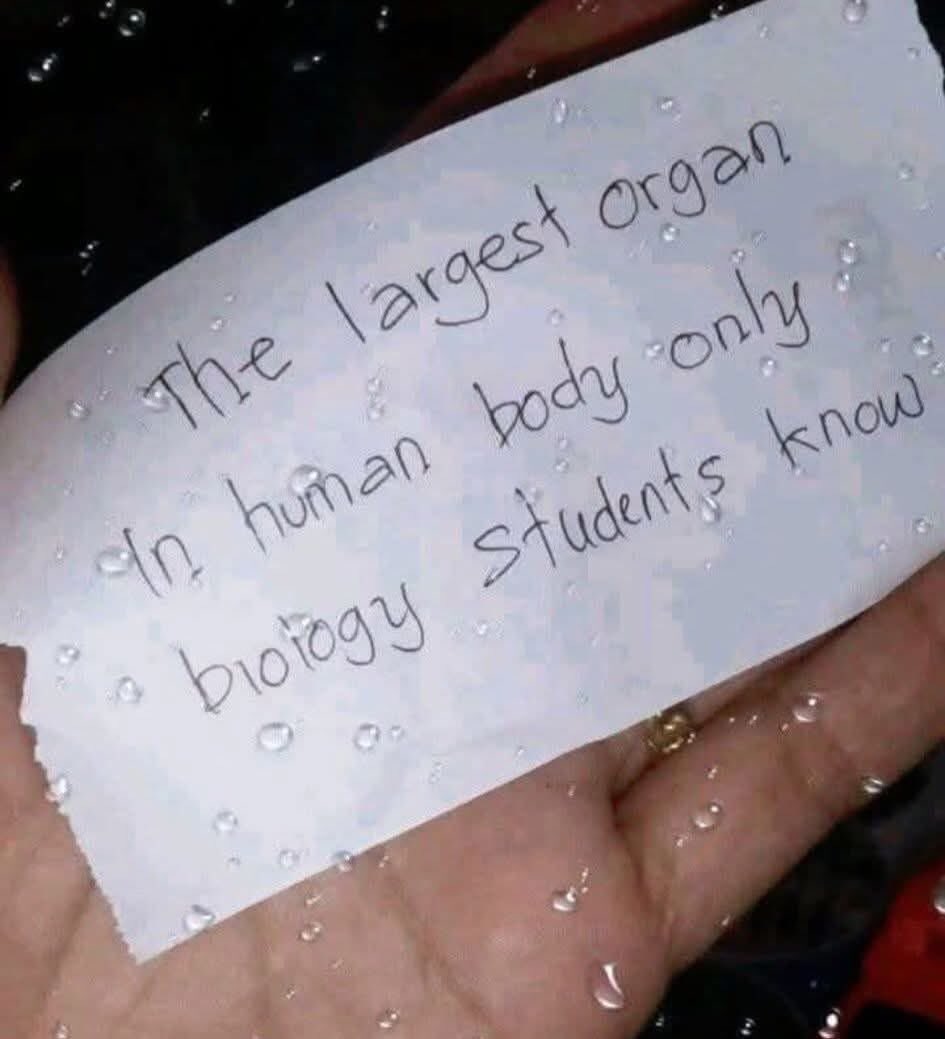 The largest organ
In human body only
biology students know